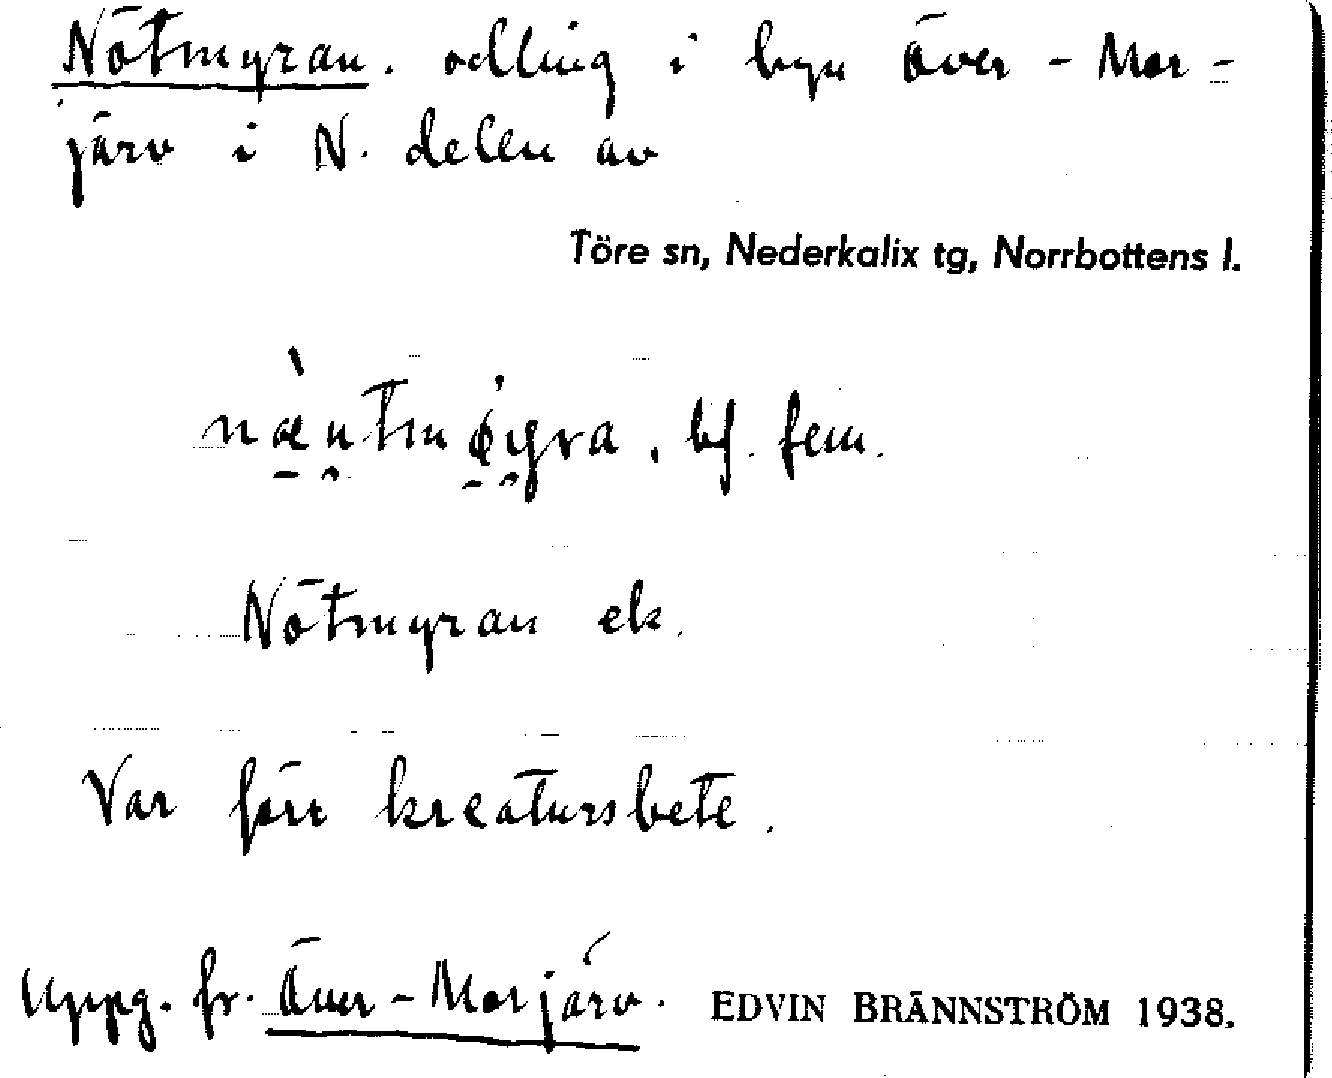 Nötmyran. odling i byn Över-Mor-
järv i N. delen av
Töre sn, Nederkalix tg, Norrbottens l.
bf. fem.
Nötmyran ek.
Var förr kreatursbete.
Uppg. fr. Över-Morjärv. EDVIN BRÄNNSTRÖM 1938.